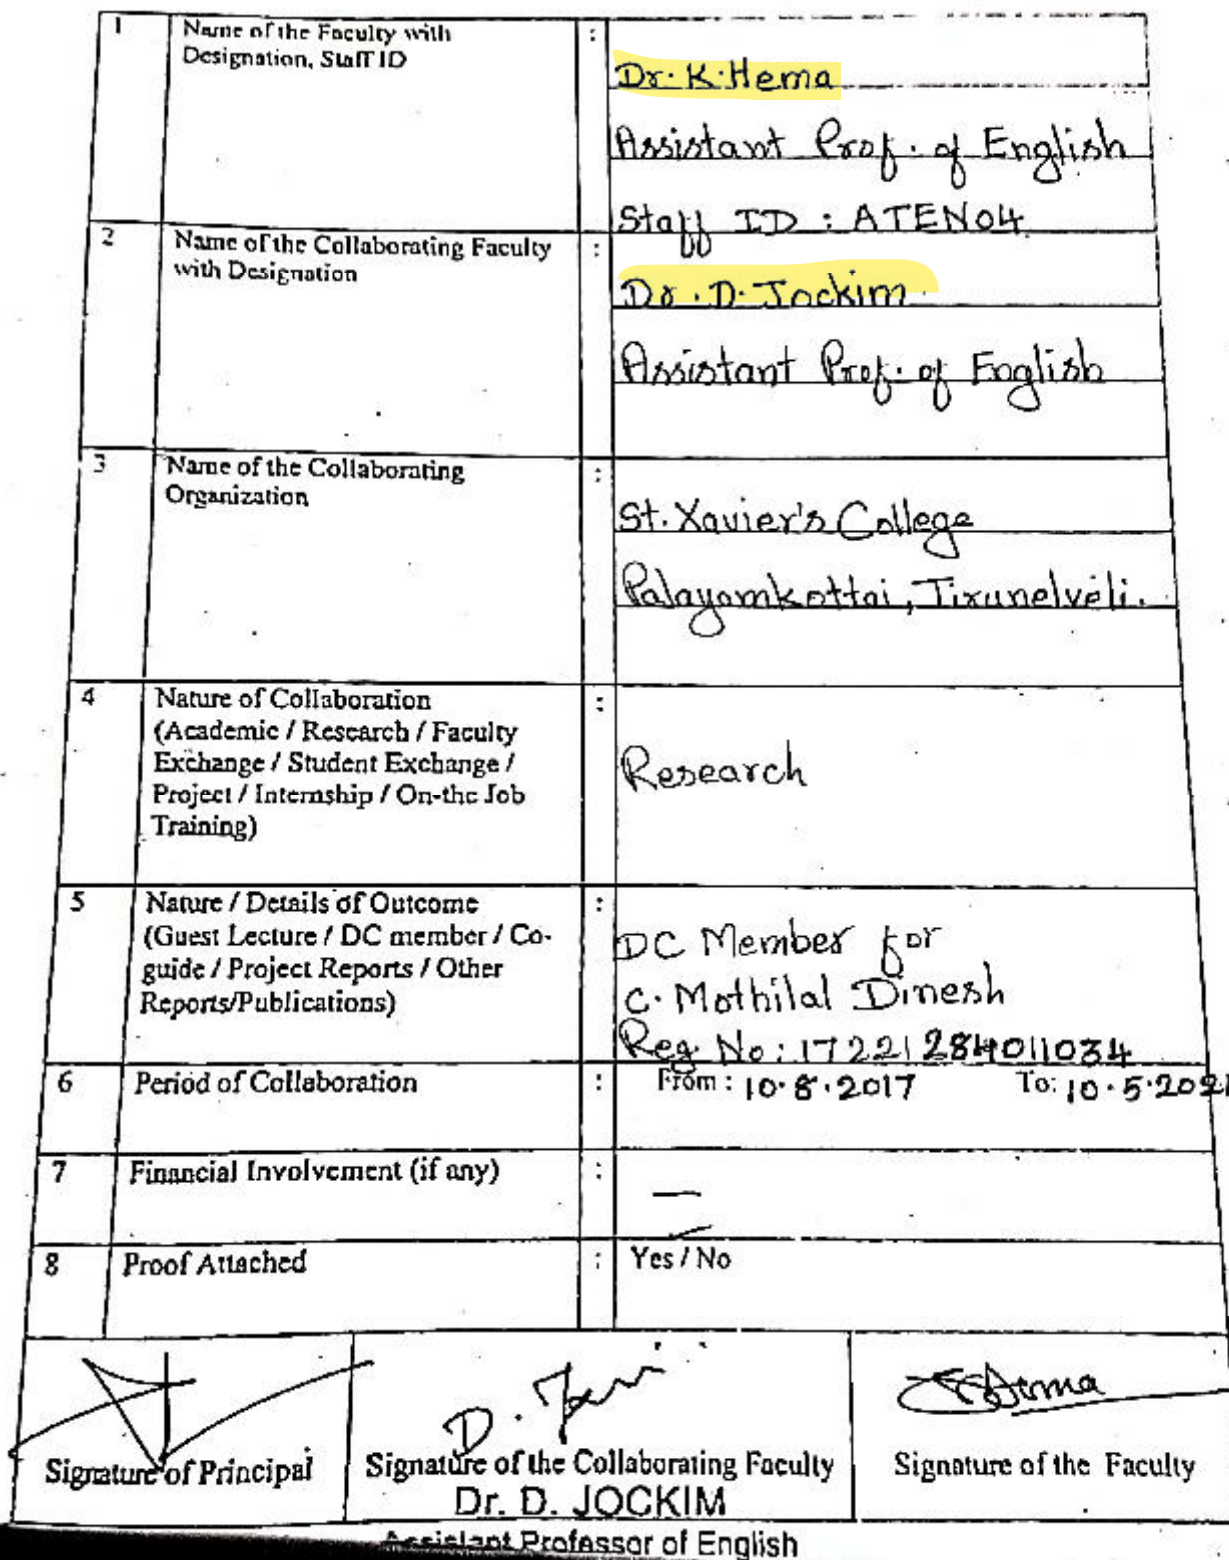 1 Name of the Faculty with
Designation, Staff ID :
Dr. K. Hema
Assistant Prof. of English
Staff ID : ATEN04
2 Name of the Collaborating Faculty
with Designation :
Dr. D. Jockim
Assistant Prof. of English
3 Name of the Collaborating
Organization :
St. Xavier's College
Palayamkottai, Tirunelveli.
4 Nature of Collaboration :
(Academic / Research / Faculty
Exchange / Student Exchange /
Project / Internship / On-the Job
Training)
Research
5 Nature / Details of Outcome :
(Guest Lecture / DC member / Co-
guide / Project Reports / Other
Reports/Publications)
DC Member for
C. Mothilal Dinesh
Reg. No : 17221284011034
6 Period of Collaboration : From : 10.8.2017 To: 10.5.2021
7 Financial Involvement (if any) : —
8 Proof Attached : Yes / No
Signature of Principal
D.
Signature of the Collaborating Faculty
Dr. D. JOCKIM
Assistant Professor of English
Hema
Signature of the Faculty